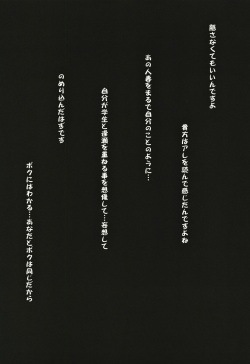 隠さなくてもいいんですよ
貴方はアレを読んで感じたんですよね
あの人妻をまるで自分のことのように…
自分が学生と逢瀬を重ねる事を想像して…妄想して
のめり込んだはずです
ボクにはわかる…あなたとボクは同じだから